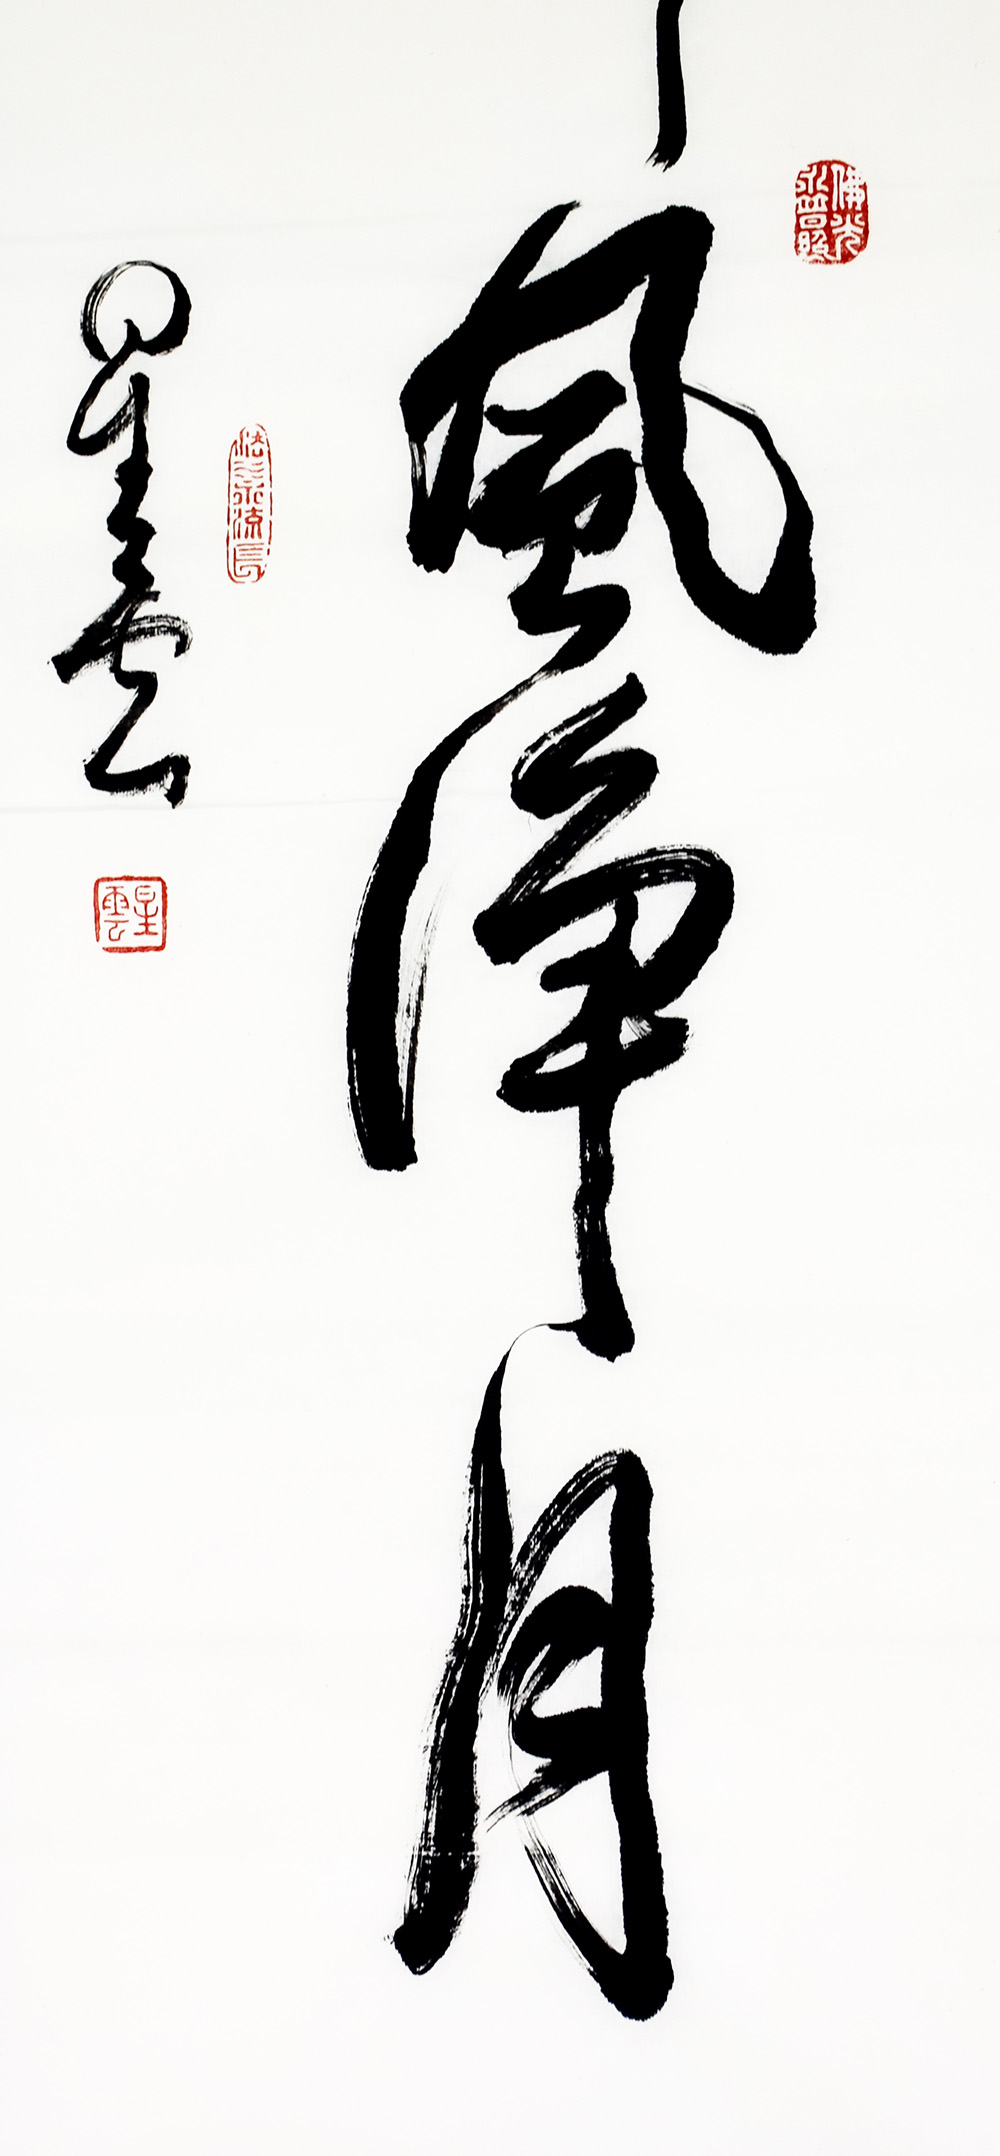 佛光永普照
風淨月
法水永流長
星雲
星雲